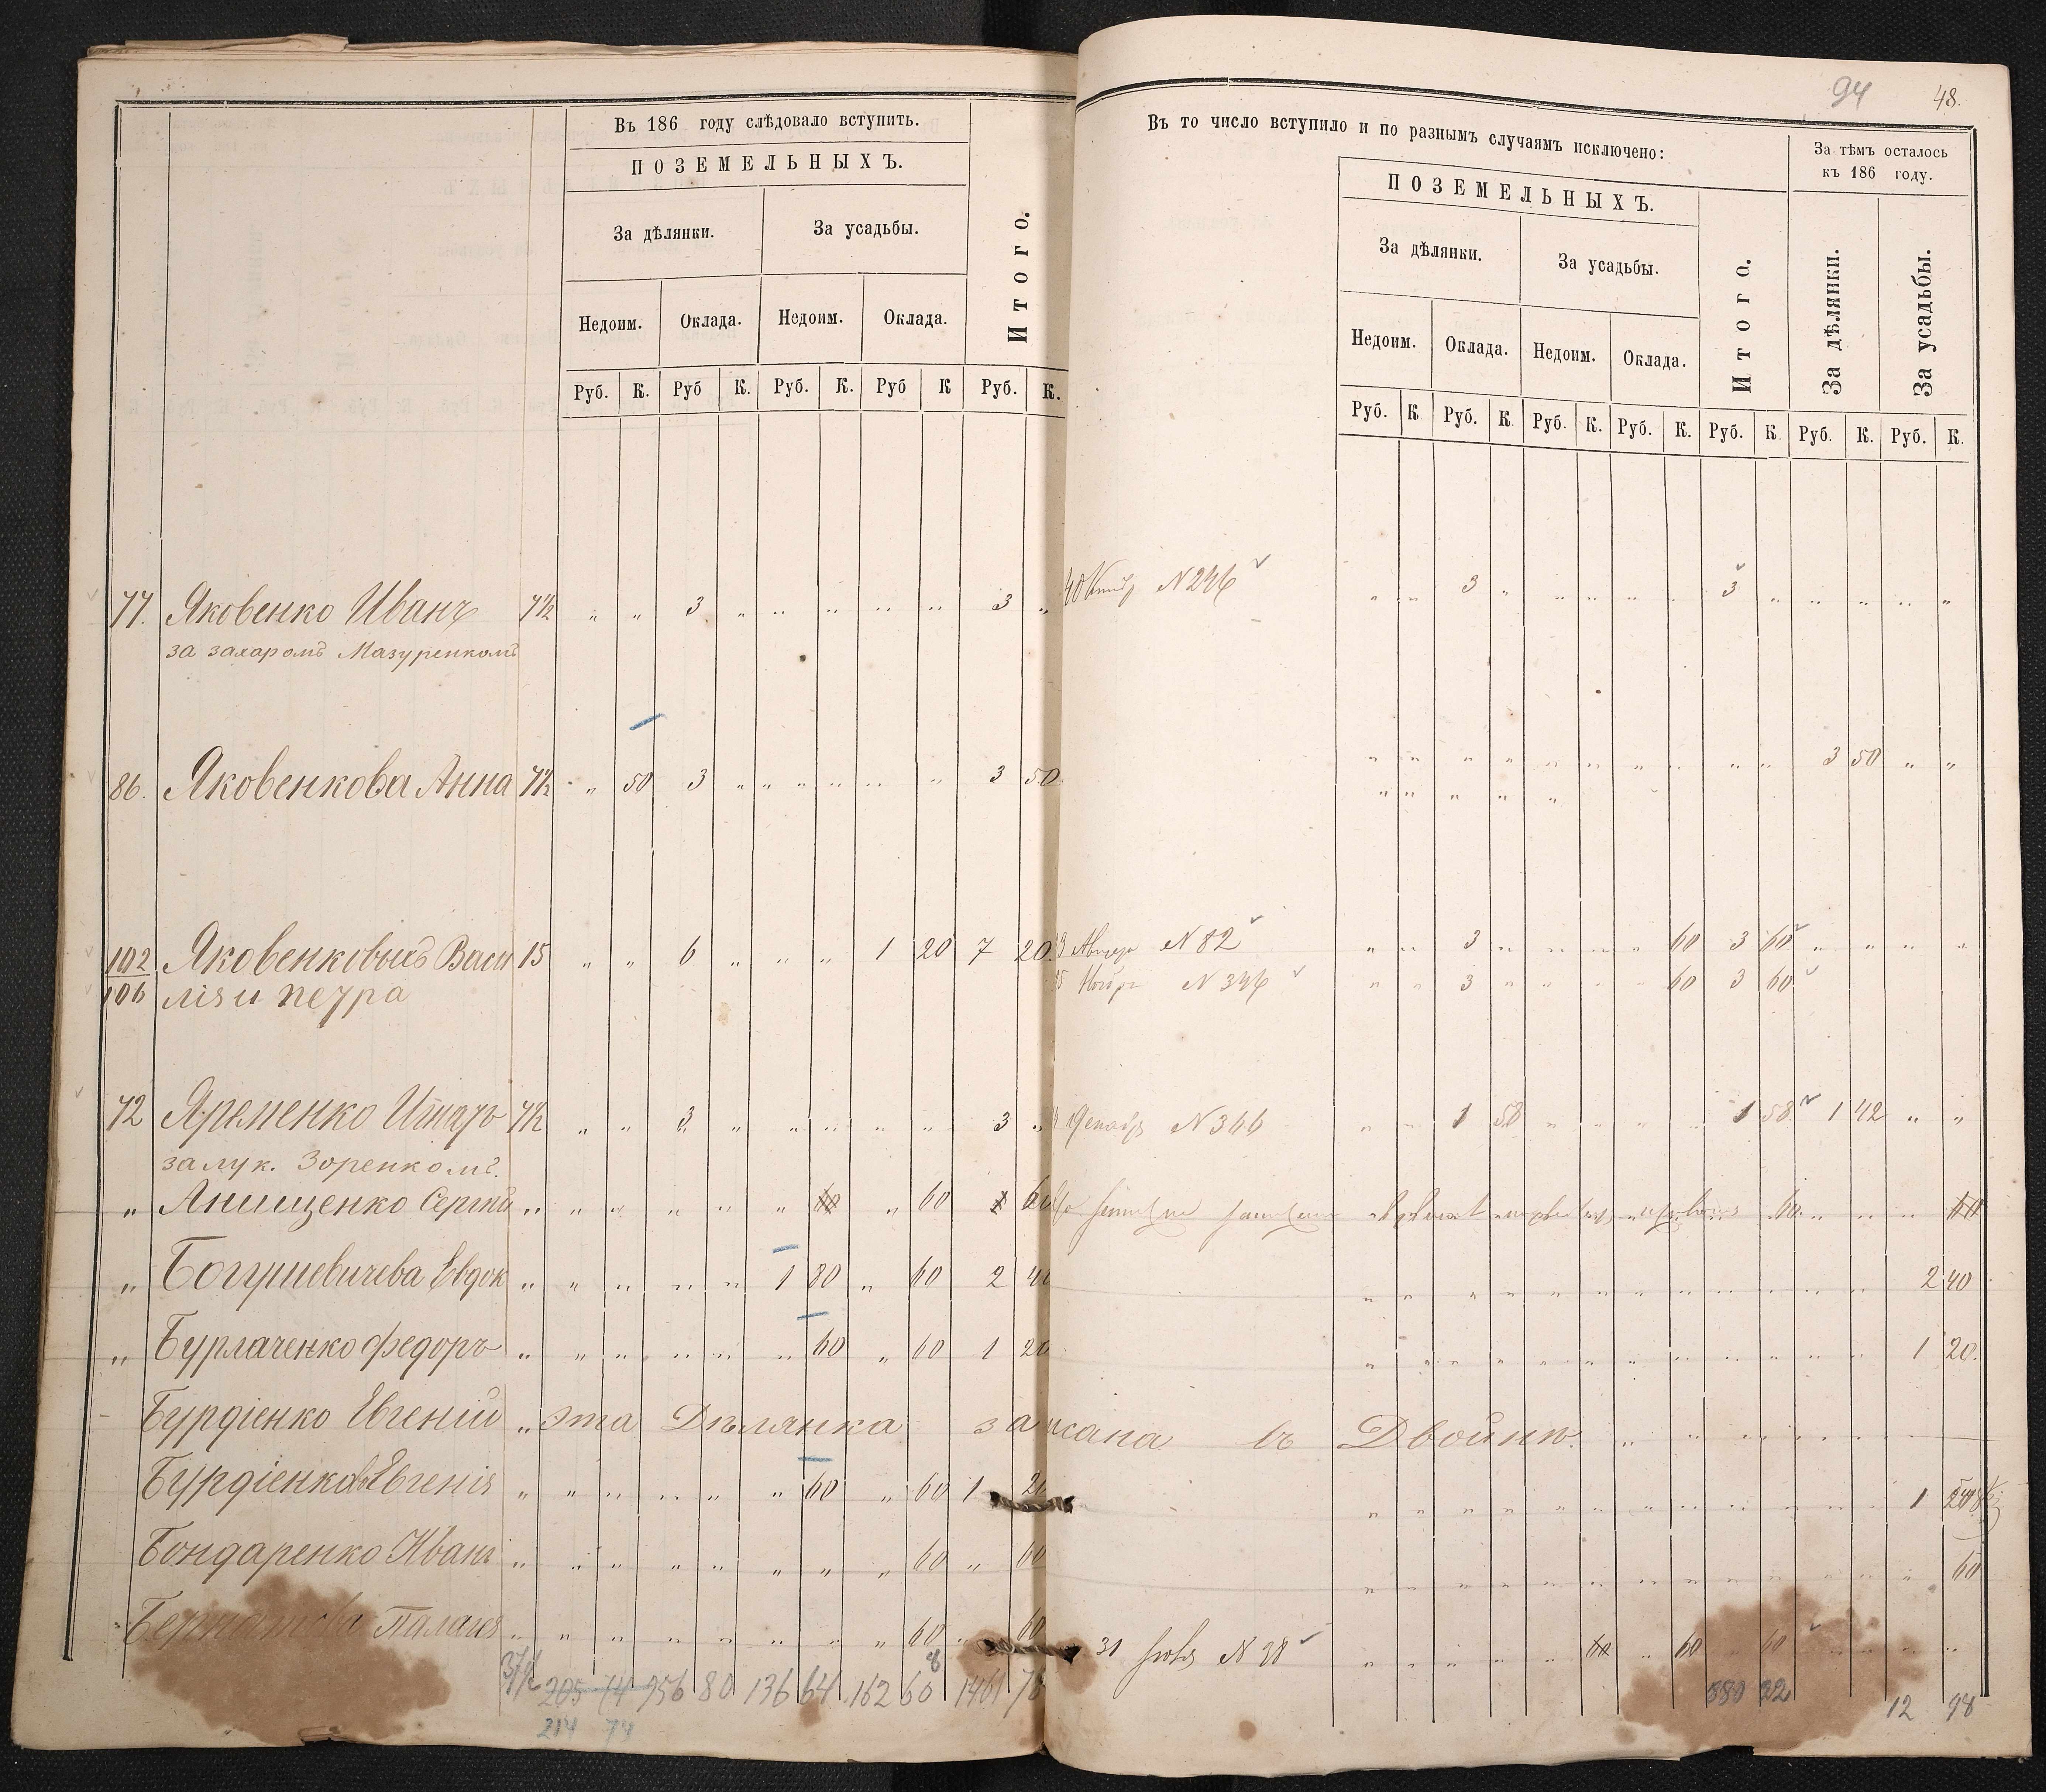 94 48.
Въ 186 году слѣдовало вступить.
ПОЗЕМЕЛЬНЫХЪ.
За дѣлянки. За усадьбы.
Итого.
Недоим. Оклада. Недоим. Оклада.
Руб. К. Руб К. Руб. К. Руб К Руб. К.
77. Яковенко Иванъ 7½ „ „ 3 „ „ „ „ „ 3 „
за захаромъ Мазуренкомъ
86. Яковенкова Анна 7½ „ 50 3 „ „ „ „ „ 3 50
102 Яковенковыхъ Васи 15 „ „ 6 „ „ „ 1 20 7 20
106 лія и петра
72 Яременко Игнатъ 7½ „ „ 3 „ „ „ „ „ 3 „
за лук. Зоренкомъ.
„ Анищенко Сергѣй „ „ „ „ „ „ 60 „ 60 1 60
„ Богушевичева Евдок „ „ „ „ „ 1 80 „ 60 2 40
„ Бурлаченко Федоръ „ „ „ „ „ „ 60 „ 60 1 20
Бурдіенко Евгеній „ эта Дѣлянка записана въ Двойнѣ.
Бурдіенкова Евгенія „ „ „ „ „ „ 60 „ 60 1 20
Бондаренко Иванъ „ „ „ „ „ „ „ „ 60 „ 60
Палагея „ „ „ „ „ „ „ „ 60 „ 60
205 74 956 80 136 64 162 60 1461 78
214 74
Въ то число вступило и по разнымъ случаямъ исключено:
За тѣмъ осталось
къ 186 году.
ПОЗЕМЕЛЬНЫХЪ.
За дѣлянки. За усадьбы.
Итого.
За дѣлянки.
За усадьбы.
Недоим. Оклада. Недоим. Оклада.
Руб. К Руб. К. Руб. К. Руб. К. Руб. К. Руб. К. Руб. К.
N 246 „ „ 3 „ „ „ „ „ 3 „ „ „ „ „
„ „ „ „ „ „ „ „ „ „ 3 50 „ „
„ „ „ „ „
N 82 „ „ 3 „ „ „ „ 60 3 60 „ „ „ „
N 346 „ „ 3 „ „ „ „ 60 3 60
Декабр N 366 „ „ 1 58 „ „ „ „ 1 58 1 42 „ „
60 „ „ „ 60
„ „ „ „ „ „ „ „ „ „ „ „ 2 40
„ „ „ „ „ „ „ „ „ „ „ „ 1 20.
„ „ „ „ „ „ „ „ „ „ „ „ 1 20
„ „ „ „ „ „ „ „ „ „ „ „ „ 60
31 N 98 „ „ „ „ „ 60 „ 60 „ 60 „ „ „ „
880 22 12 98